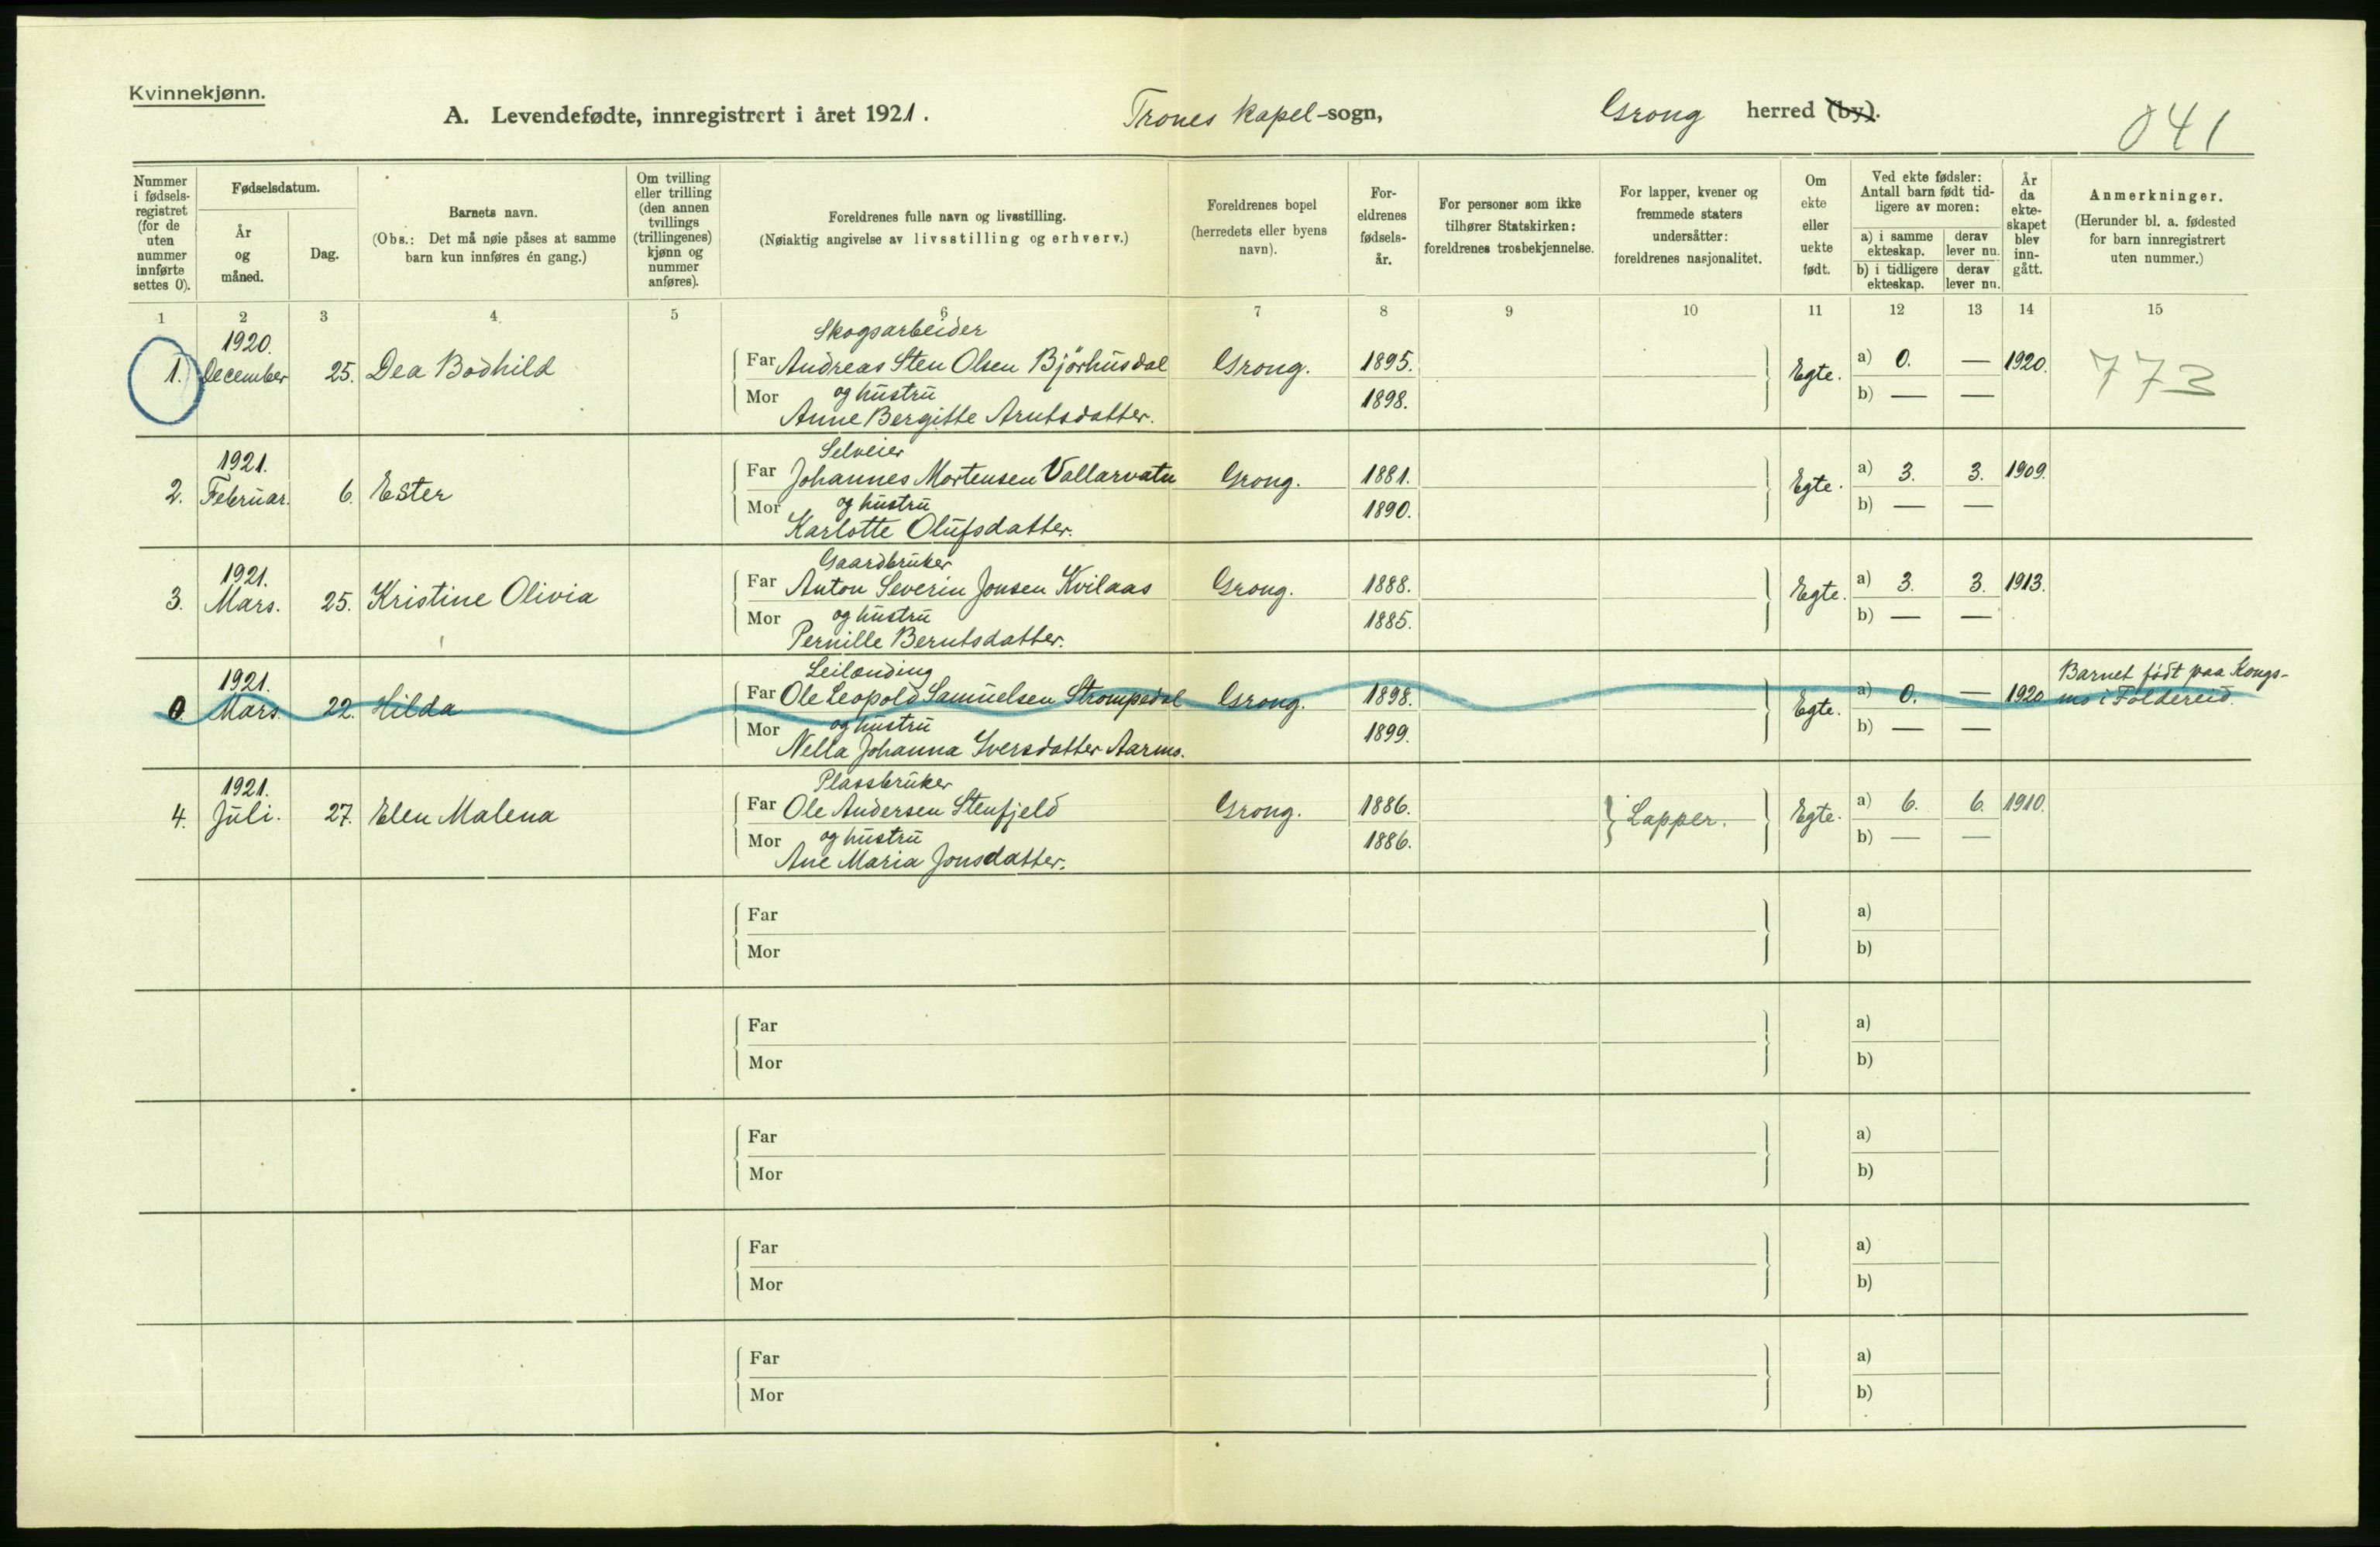 Kvinnekjønn.
A. Levendefødte, innregistrert i året 1921. Trones kapel-sogn, Grong herred (by).
041
Nummer i fødsels-registret (for de uten nummer innførte settes 0).
Fødselsdatum.
År og måned.
Dag.
Barnets navn.
(Obs.: Det må nøie påses at samme barn kun innføres én gang.)
Om tvilling eller trilling (den annen tvillings (trillingenes) kjønn og nummer anføres).
Foreldrenes fulle navn og livsstilling.
(Nøiaktig angivelse av livsstilling og erhverv.)
Foreldrenes bopel (herredets eller byens navn).
For-eldrenes fødsels-år.
For personer som ikke tilhører Statskirken: foreldrenes trosbekjennelse.
For lapper, kvener og fremmede staters undersåtter: foreldrenes nasjonalitet.
Om ekte eller uekte født.
Ved ekte fødsler: Antall barn født tid-ligere av moren:
a) i samme ekteskap. derav lever nu.
b) i tidligere ekteskap. derav lever nu.
År da ekte-skapet blev inn-gått.
Anmerkninger.
(Herunder bl. a. fødested for barn innregistrert uten nummer.)
1 2 3 4 5 6 7 8 9 10 11 12 13 14 15
1920. Skogsarbeider
1. December 25. Dea Bodhild Far Andreas Sten Olsen Björhusdal Grong. 1895. Egte. a) 0. — 1920. 773
Mor og hustru 1898. b) — —
Anne Bergitte Arntsdatter.
1921. Selveier
2. Februar. 6. Ester Far Johannes Mortensen Vallarvatn Grong. 1881. Egte. a) 3. 3. 1909.
Mor og hustru 1890. b) — —
Karlotte Olufsdatter.
1921. Gaardbruker
3. Mars. 25. Kristine Olivia Far Anton Severin Jonsen Kvilaas Grong. 1888. Egte. a) 3. 3. 1913.
Mor og hustru 1885. b) — —
Pernille Berntsdatter.
1921. Leilænding Barnet födt paa Kongs-
0 Mars. 22. Hilda Far Ole Leopold Samuelsen Strompedal Grong. 1898. Egte. a) 0. — 1920 mo i Foldereid.
Mor og hustru 1899. b) — —
Nella Johanna Iversdatter Aarmo.
1921. Plassbruker
4. Juli. 27. Elen Malena Far Ole Andersen Stenfjeld Grong. 1886. Lapper. Egte. a) 6. 6. 1910.
Mor og hustru 1886. b) — —
Ane Maria Jonsdatter.
Far a)
Mor b)
Far a)
Mor b)
Far a)
Mor b)
Far a)
Mor b)
Far a)
Mor b)